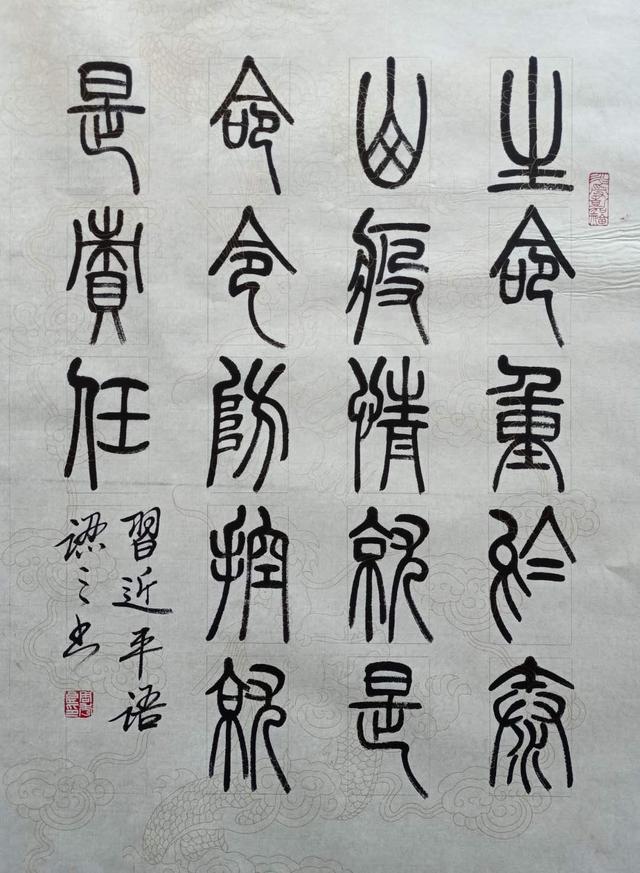 生命重於泰
山疫情就是
命令防控就
是責任
習近平语
之书